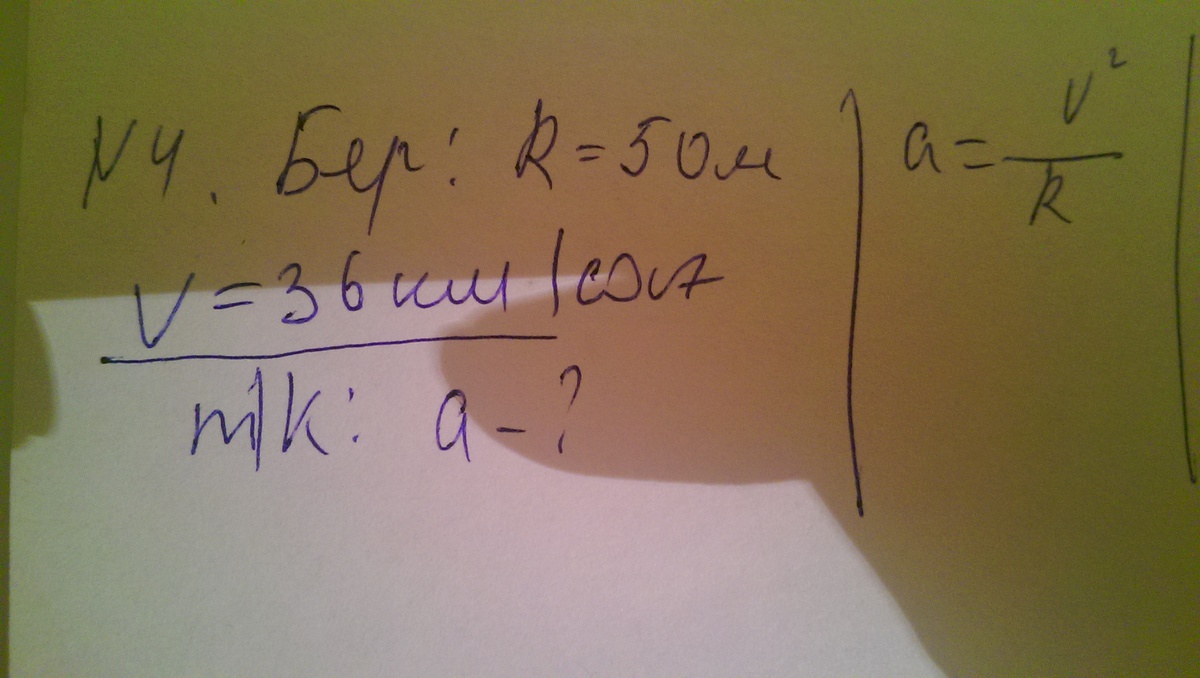 №4. Бер: R = 50м
V = 36 км/сағ
т/к: a - ?
a = V²/R